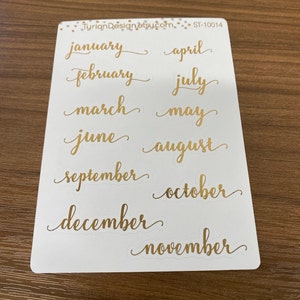 ST-10014
january april
february july
march may
june august
september october
december november